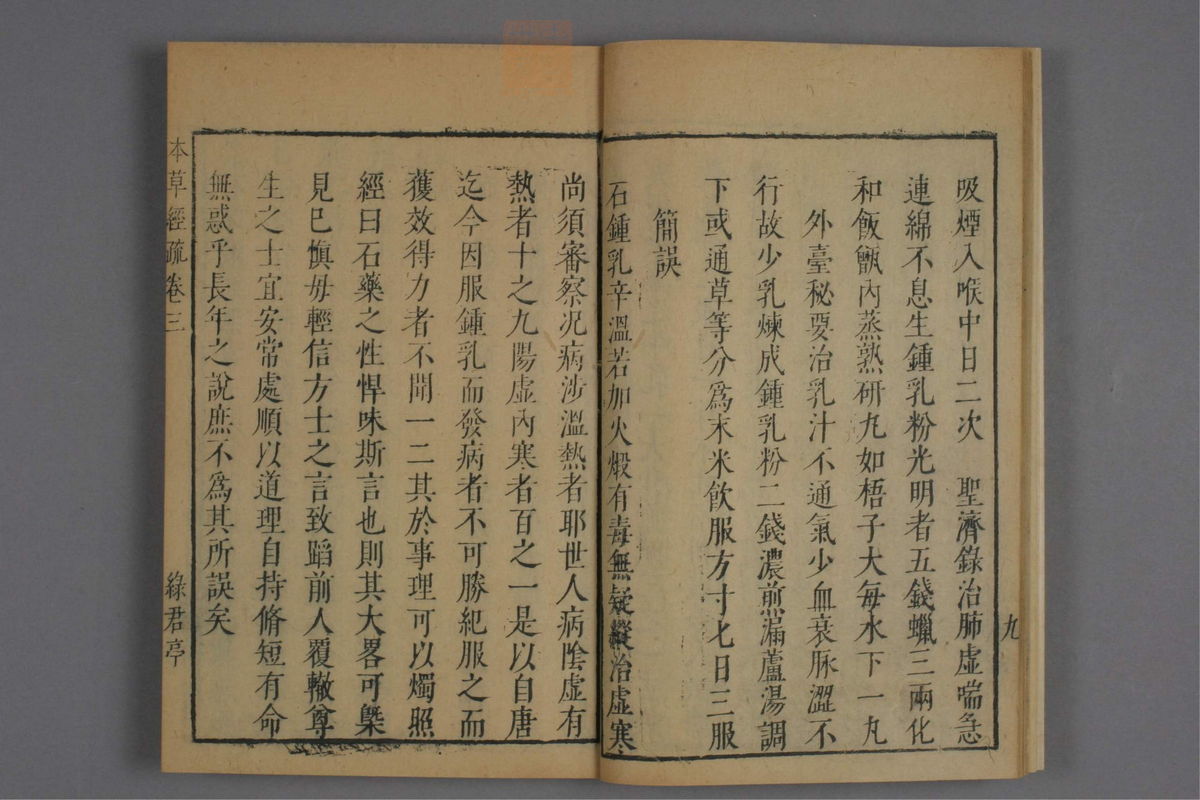 吸煙入喉中日二次　聖濟錄治肺虛喘急
連綿不息生鍾乳粉光明者五錢蠟三兩化
和飯甑內蒸熟研丸如梧子大每水下一丸
外臺秘要治乳汁不通氣少血衰脉澀不
行故少乳煉成鍾乳粉二錢濃煎漏蘆湯調
下或通草等分爲末米飲服方寸匕日三服
簡誤
石鍾乳辛溫若加火煅有毒無疑縱治虛寒
尚須審察况病涉溫熱者耶世人病陰虛有
熱者十之九陽虛內寒者百之一是以自唐
迄今因服鍾乳而發病者不可勝紀服之而
獲效得力者不聞一二其於事理可以燭照
經曰石藥之性悍味斯言也則其大畧可槩
見已慎毋輕信方士之言致蹈前人覆轍尊
生之士宜安常處順以道理自持脩短有命
無惑乎長年之說庶不爲其所誤矣
本草經疏卷三
綠君亭
九